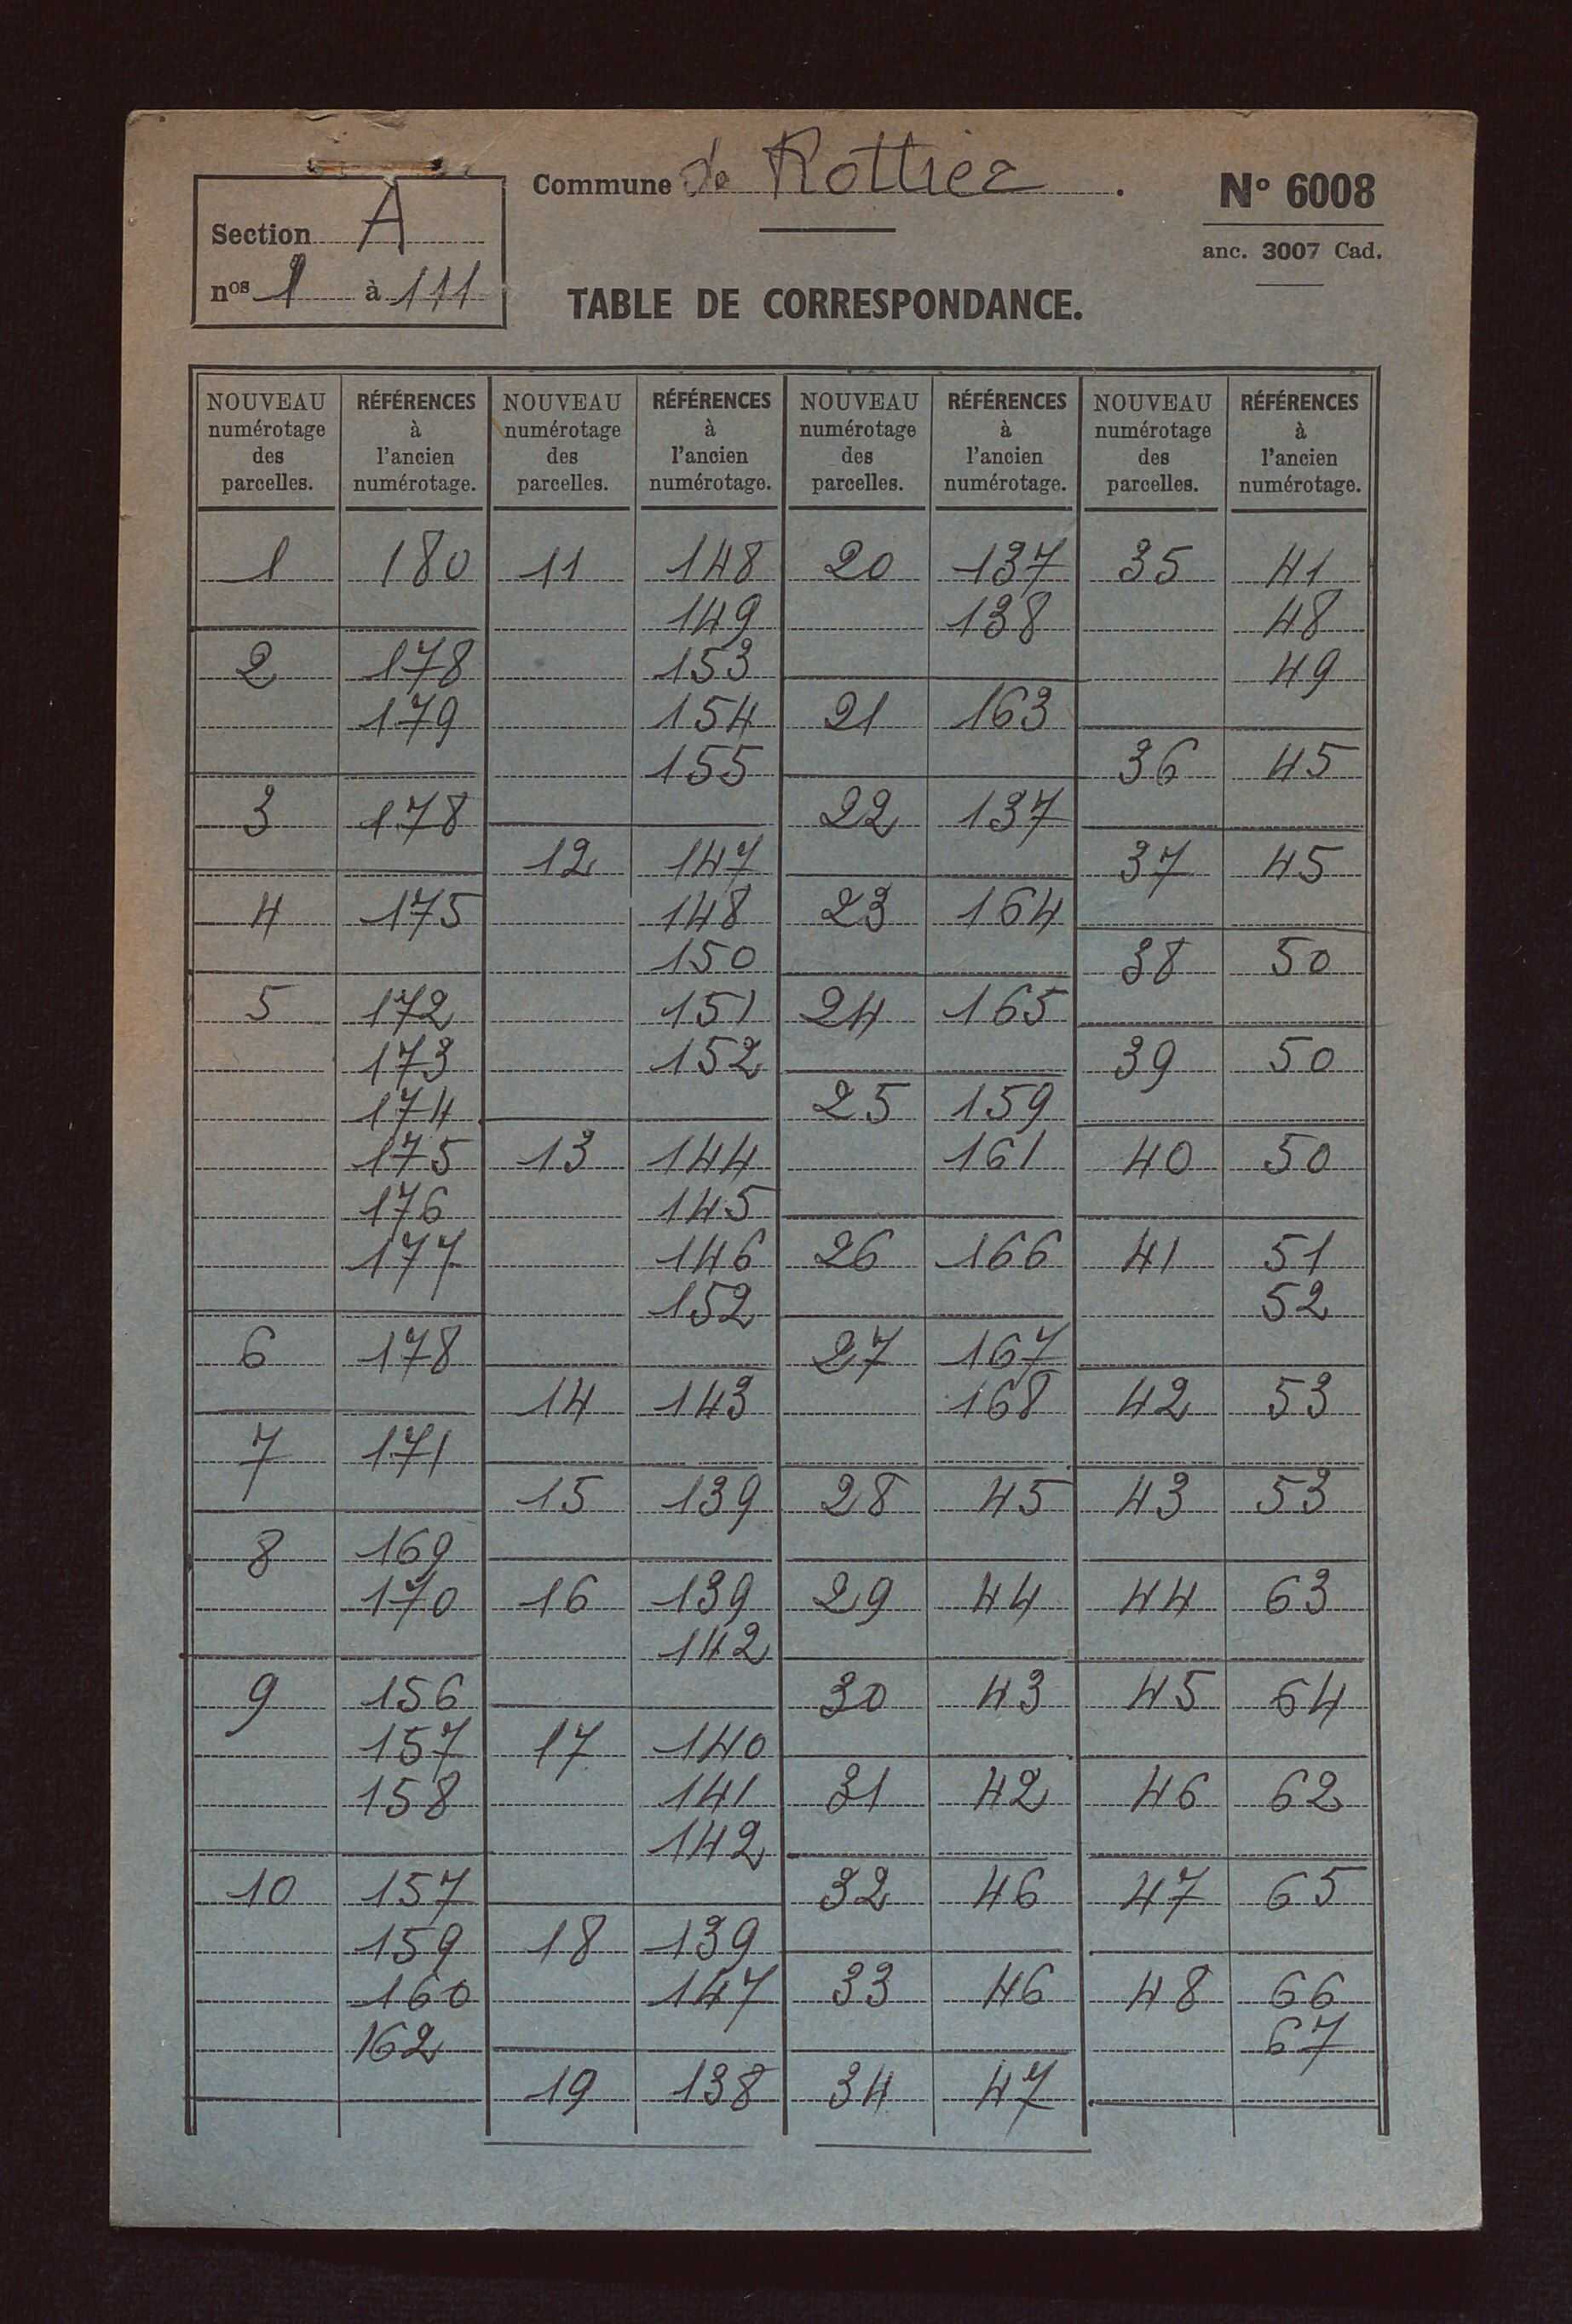 Commune de Rottier.
N° 6008
anc. 3007 Cad.
Section A
nos 1 à 111
TABLE DE CORRESPONDANCE.
NOUVEAU numérotage des parcelles.
RÉFÉRENCES à l'ancien numérotage.
NOUVEAU numérotage des parcelles.
RÉFÉRENCES à l'ancien numérotage.
NOUVEAU numérotage des parcelles.
RÉFÉRENCES à l'ancien numérotage.
NOUVEAU numérotage des parcelles.
RÉFÉRENCES à l'ancien numérotage.
1 180
2 178
179
3 178
4 175
5 172
173
174
175
176
177
6 178
7 171
8 169
170
9 156
157
158
10 157
159
160
162
11 148
149
153
154
155
12 147
148
150
151
152
13 144
145
146
152
14 143
15 139
16 139
142
17 140
141
142
18 139
147
19 138
20 137
138
21 163
22 137
23 164
24 165
25 159
161
26 166
27 167
168
28 45
29 44
30 43
31 42
32 46
33 46
34 47
35 41
48
49
36 45
37 45
38 50
39 50
40 50
41 51
52
42 53
43 53
44 63
45 64
46 62
47 65
48 66
67